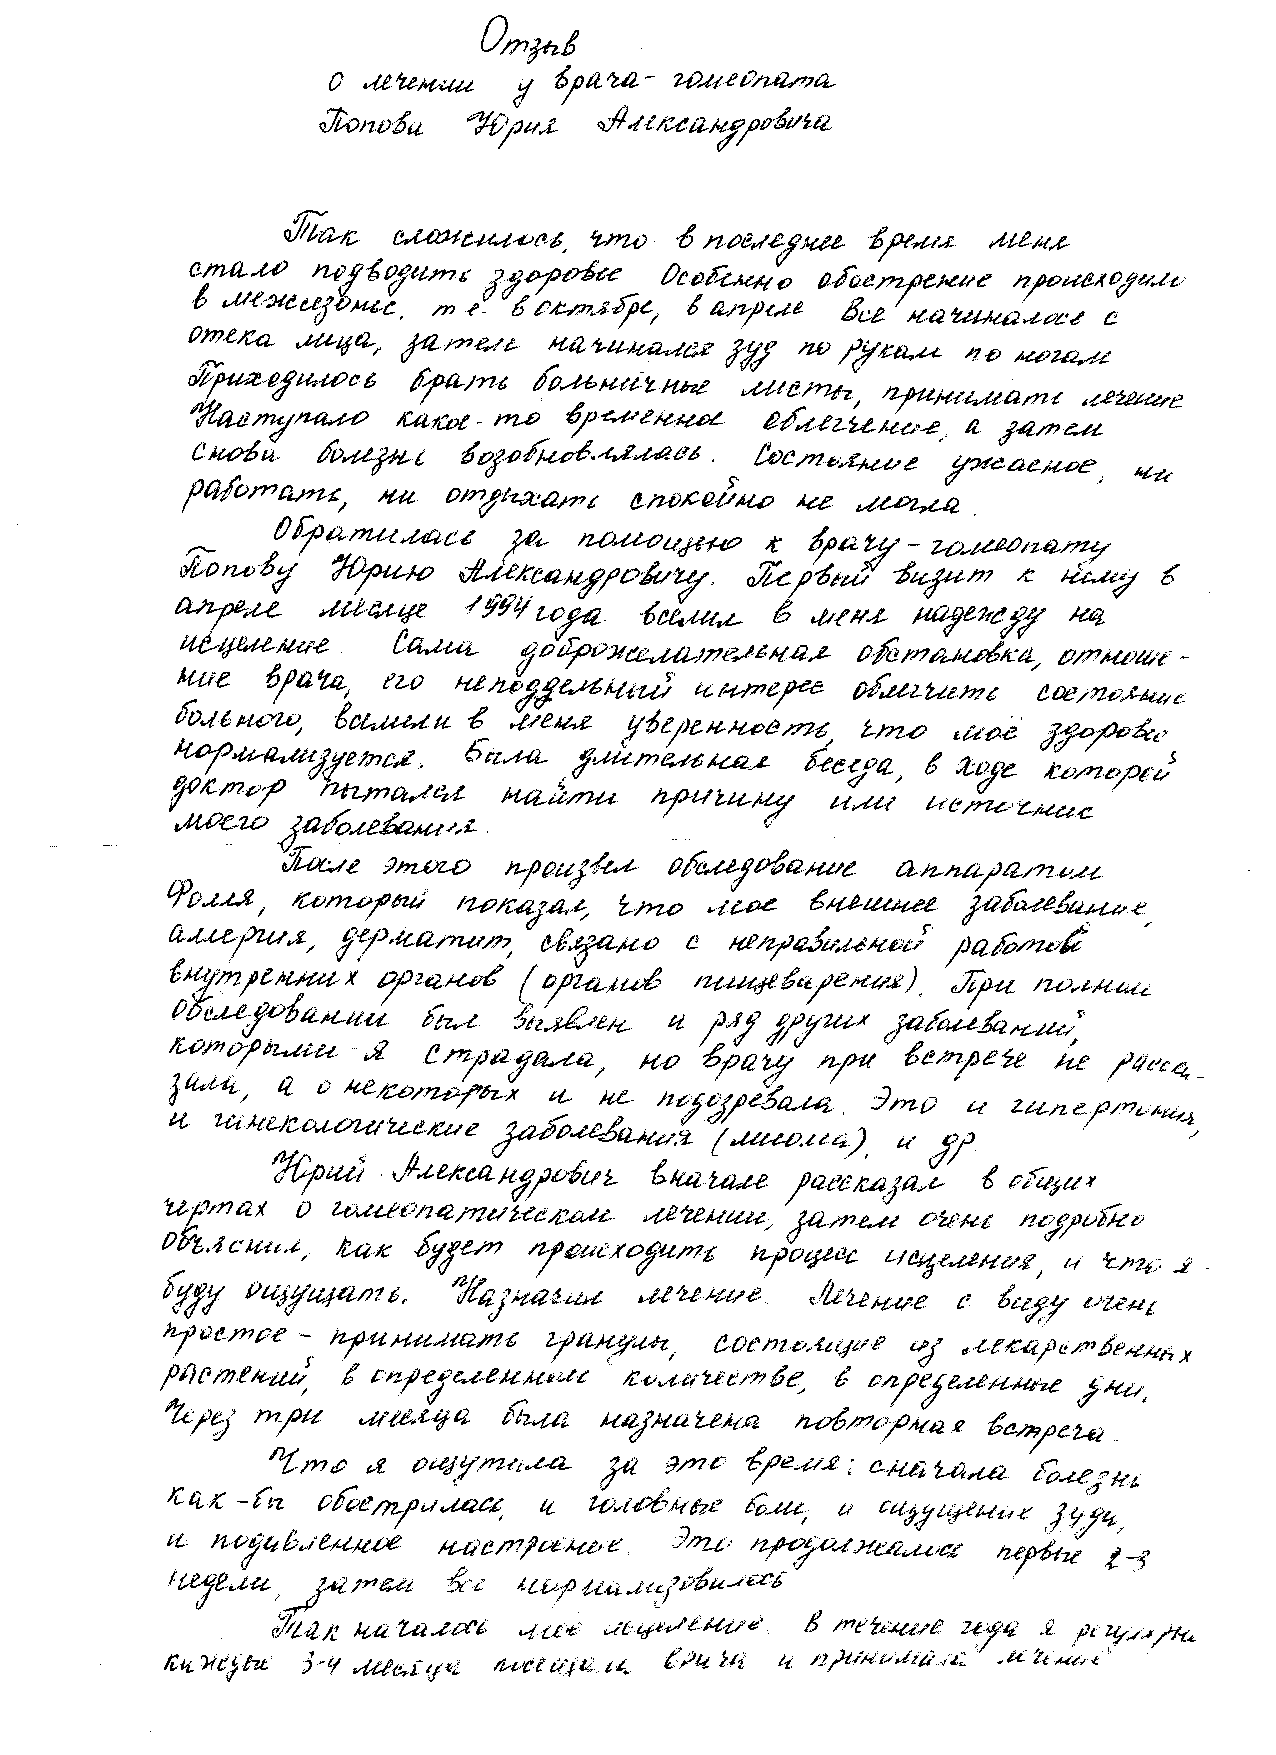 Отзыв
о лечении у врача-гомеопата
Попова Юрия Александровича
Так сложилось, что в последнее время меня
стало подводить здоровье Особенно обострение происходило
в межсезонье, т е. в октябре, в апреле Все начиналось с
отека лица, затем начинался зуд по рукам по ногам
Приходилось брать больничные листы, принимать лечение
Наступало какое-то временное облегчение, а затем
снова болезнь возобновлялась. Состояние ужасное, ни
работать, ни отдыхать спокойно не могла.
Обратилась за помощью к врачу-гомеопату
Попову Юрию Александровичу. Первый визит к нему в
апреле месяце 1994 года вселил в меня надежду на
исцеление. Сама доброжелательная обстановка, отноше-
ние врача, его неподдельный интерес облегчить состояние
больного, вселили в меня уверенность, что моё здоровье
нормализуется. Была длительная беседа, в ходе которой
доктор пытался найти причину или источник
моего заболевания.
После этого произвел обследование аппаратом
Фолля, который показал, что мое внешнее заболевание,
аллергия, дерматит, связано с неправильной работой
внутренних органов (органов пищеварения). При полном
обследовании был выявлен и ряд других заболеваний,
которыми я страдала, но врачу при встрече не расска-
зала, а о некоторых и не подозревала. Это и гипертония,
и гинекологические заболевания (миома), и др
Юрий Александрович вначале рассказал в общих
чертах о гомеопатическом лечении, затем очень подробно
объяснил, как будет происходить процесс исцеления, и что я
буду ощущать. Назначил лечение. Лечение с виду очень
простое - принимать гранулы, состоящие из лекарственных
растений, в определенном количестве, в определенные дни.
Через три месяца была назначена повторная встреча.
Что я ощутила за это время: сначала болезнь
как-бы обострилась, и головные боли, и ощущение зуда,
и подавленное настроение. Это продолжалось первые 2-3
недели, затем все нормализовалось
Так началось моё исцеление. В течение года я регулярно
каждые 3-4 месяца посещала врача и принимала лечение